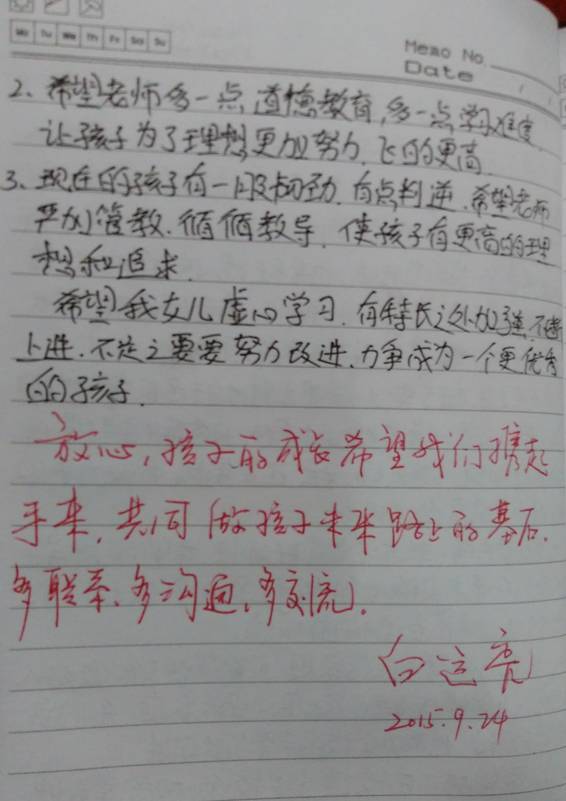 Mo Tu We Th Fr Sa Su
Memo No.
Date / /
2、希望老师多一点道德教育,多一点学习难度
让孩子为了理想更加努力,飞的更高
3、现在的孩子有一股犟劲,有点判逆,希望老师
严加管教,循循教导,使孩子有更高的理
想和追求.
希望我女儿虚心学习,有特长之处加强,不断
上进,不足之处要努力改进,力争成为一个更优秀
的孩子.
放心,孩子的成长希望我们携起
手来,共同做孩子未来路上的基石.
多联系、多沟通、多交流.
白运亮
2015.9.24